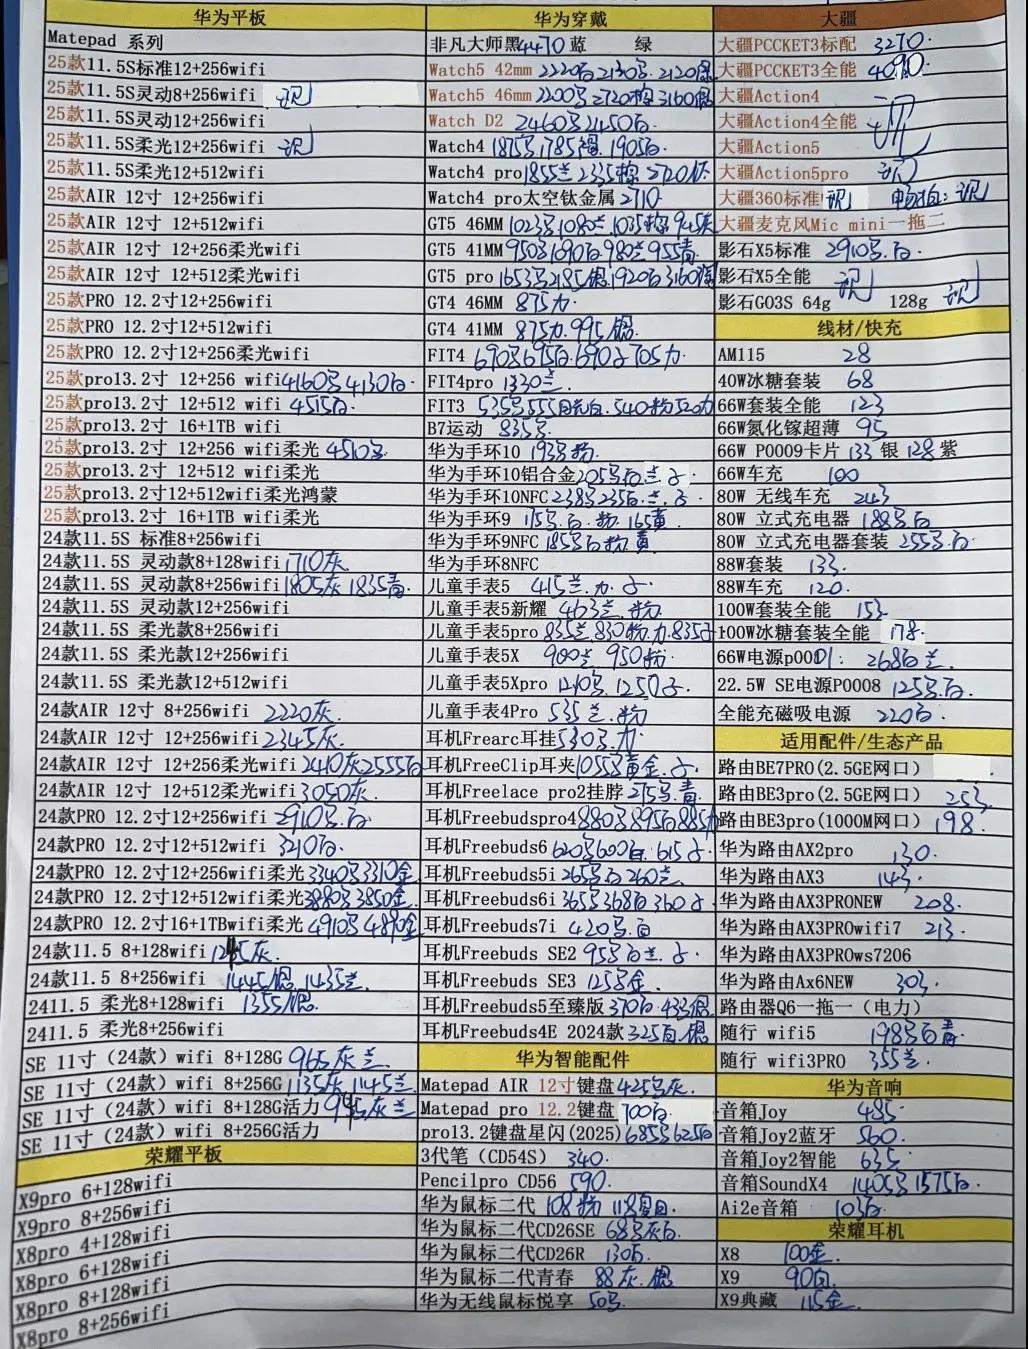 华为平板
Matepad 系列
25款11.5S标准12+256wifi
25款11.5S灵动8+256wifi 识
25款11.5S灵动12+256wifi
25款11.5S柔光12+256wifi 识
25款11.5S柔光12+512wifi
25款AIR 12寸 12+256wifi
25款AIR 12寸 12+512wifi
25款AIR 12寸 12+256柔光wifi
25款AIR 12寸 12+512柔光wifi
25款PRO 12.2寸12+256wifi
25款PRO 12.2寸12+512wifi
25款PRO 12.2寸12+256柔光wifi
25款pro13.2寸 12+256 wifi 4160 4130白
25款pro13.2寸 12+512 wifi 4515白
25款pro13.2寸 16+1TB wifi
25款pro13.2寸 12+256 wifi柔光 4510
25款pro13.2寸 12+512 wifi 柔光
25款pro13.2寸12+512wifi柔光鸿蒙
25款pro13.2寸 16+1TB wifi柔光
24款11.5S 标准8+256wifi
24款11.5S 灵动款8+128wifi 1710灰
24款11.5S 灵动款8+256wifi 1805灰 1835青
24款11.5S 灵动款12+256wifi
24款11.5S 柔光款8+256wifi
24款11.5S 柔光款12+256wifi
24款11.5S 柔光款12+512wifi
24款AIR 12寸 8+256wifi 2220灰
24款AIR 12寸 12+256wifi 2345灰
24款AIR 12寸 12+256柔光wifi 2410灰2555白
24款AIR 12寸 12+512柔光wifi 3050灰
24款PRO 12.2寸12+256wifi 2910 白
24款PRO 12.2寸12+512wifi 3210白
24款PRO 12.2寸12+256wifi柔光 3340 3310金
24款PRO 12.2寸12+512wifi柔光 3880 3850金
24款PRO 12.2寸16+1TBwifi柔光 4910 4890金
24款11.5 8+128wifi 灰
24款11.5 8+256wifi 1445银 1435兰
2411.5 柔光8+128wifi 1355银
2411.5 柔光8+256wifi
SE 11寸 (24款) wifi 8+128G 965灰 兰
SE 11寸 (24款) wifi 8+256G 1135灰 1145兰
SE 11寸 (24款) wifi 8+128G活力 灰兰
SE 11寸 (24款) wifi 8+256G活力
荣耀平板
X9pro 6+128wifi
X9pro 8+256wifi
X8pro 4+128wifi
X8pro 6+128wifi
X8pro 8+128wifi
X8pro 8+256wifi
华为穿戴
非凡大师黑4470 蓝 绿
Watch5 42mm 2220白2130 2120
Watch5 46mm 2200 2720 3160银
Watch D2 2460 2450白
Watch4 1875 1785 1905白
Watch4 pro 1855兰 2335棕 2720
Watch4 pro太空钛金属 2710
GT5 46MM 1023 1080兰 1035棕 945灰
GT5 41MM 950 1090白980兰955青
GT5 pro 1653 2185银1920白3160
GT4 46MM 875
GT4 41MM 875 995银
FIT4 690 675白 690 705
FIT4pro 1330兰
FIT3 535 555 540粉520
B7运动 835
华为手环10 193 粉
华为手环10铝合金 205 白兰
华为手环10NFC 238 235白 兰
华为手环9 175 白 粉 165黄
华为手环9NFC 185 白粉 黄
华为手环8NFC
儿童手表5 415兰
儿童手表5新耀 463兰 粉
儿童手表5pro 835兰 830粉 835
儿童手表5X 900兰 950粉
儿童手表5Xpro 1240 1250
儿童手表4Pro 535兰 粉
耳机Frearc耳挂 530
耳机FreeClip耳夹 1055 黄金
耳机Freelace pro2挂脖 275 青
耳机Freebudspro4 880 895白885
耳机Freebuds6 620 600白 615
耳机Freebuds5i 265 白260兰
耳机Freebuds6i 365 368白 360
耳机Freebuds7i 420 白
耳机Freebuds SE2 95 白兰
耳机Freebuds SE3 125 金
耳机Freebuds5至臻版 370白 433银
耳机Freebuds4E 2024款 325白 银
华为智能配件
Matepad AIR 12寸键盘 425 灰
Matepad pro 12.2键盘 700白
pro13.2键盘星闪(2025) 685 625白
3代笔 (CD54S) 340
Pencilpro CD56 590
华为鼠标二代 108粉 118
华为鼠标二代CD26SE 68 灰白
华为鼠标二代CD26R 130白
华为鼠标二代青春 88灰 银
华为无线鼠标悦享 50
大疆
大疆PCCKET3标配 3270
大疆PCCKET3全能
大疆Action4
大疆Action4全能 识
大疆Action5
大疆Action5pro 识
大疆360标准 识 畅拍:识
大疆麦克风Mic mini一拖二
影石X5标准 2910 白
影石X5全能 识
影石GO3S 64g 128g 识
线材/快充
AM115 28
40W冰糖套装 68
66W套装全能 123
66W氮化镓超薄 95
66W P0009卡片 133 银 128 紫
66W车充 100
80W 无线车充 243
80W 立式充电器 188 白
80W 立式充电器套装 255 白
88W套装 133
88W车充 120
100W套装全能 153
100W冰糖套装全能 178
66W电源p0001: 268白兰
22.5W SE电源P0008 125 白
全能充磁吸电源 220白
适用配件/生态产品
路由BE7PRO(2.5GE网口)
路由BE3pro(2.5GE网口) 253
路由BE3pro(1000M网口) 198
华为路由AX2pro 130
华为路由AX3 143
华为路由AX3PRONEW 208
华为路由AX3PROwifi7 213
华为路由AX3PROws7206
华为路由Ax6NEW 303
路由器Q6一拖一 (电力)
随行 wifi5 198 白青
随行 wifi3PRO 355兰
华为音响
音箱Joy 485
音箱Joy2蓝牙 560
音箱Joy2智能 635
音箱SoundX4 1405 1575白
Ai2e音箱 103白
荣耀耳机
X8 100金
X9 90白
X9典藏 115金